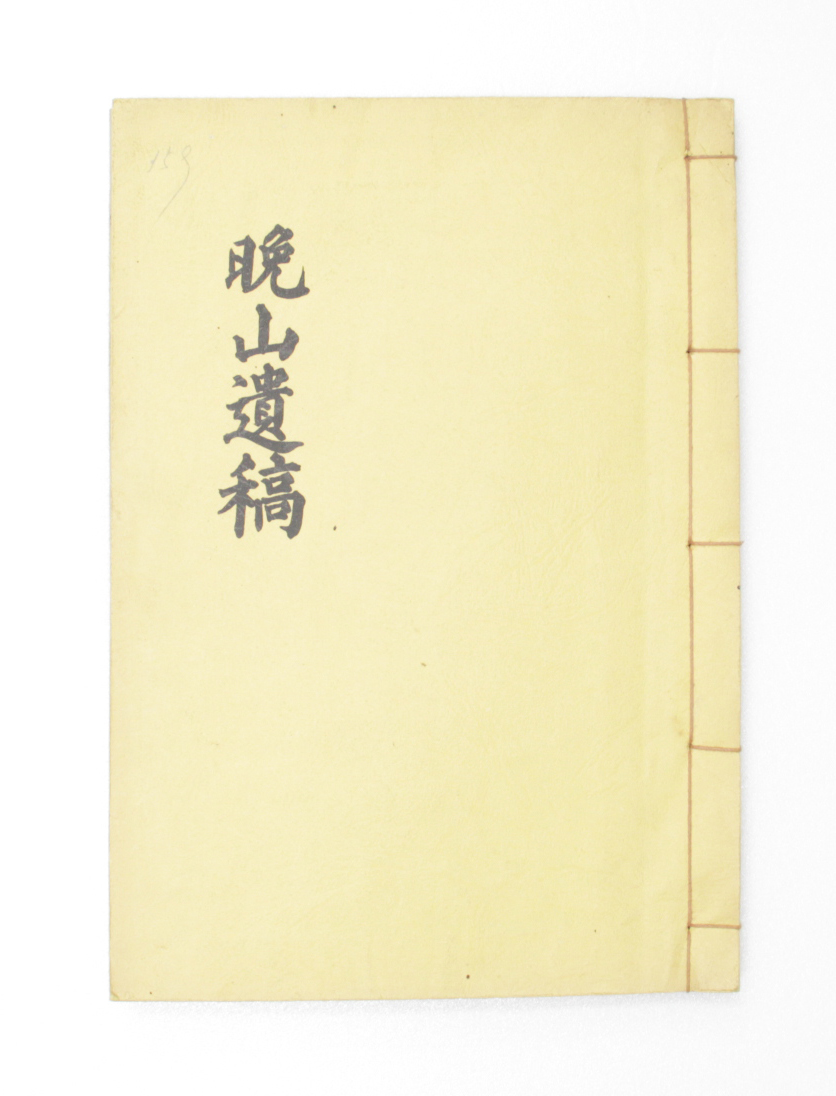 晩山遺稿
159